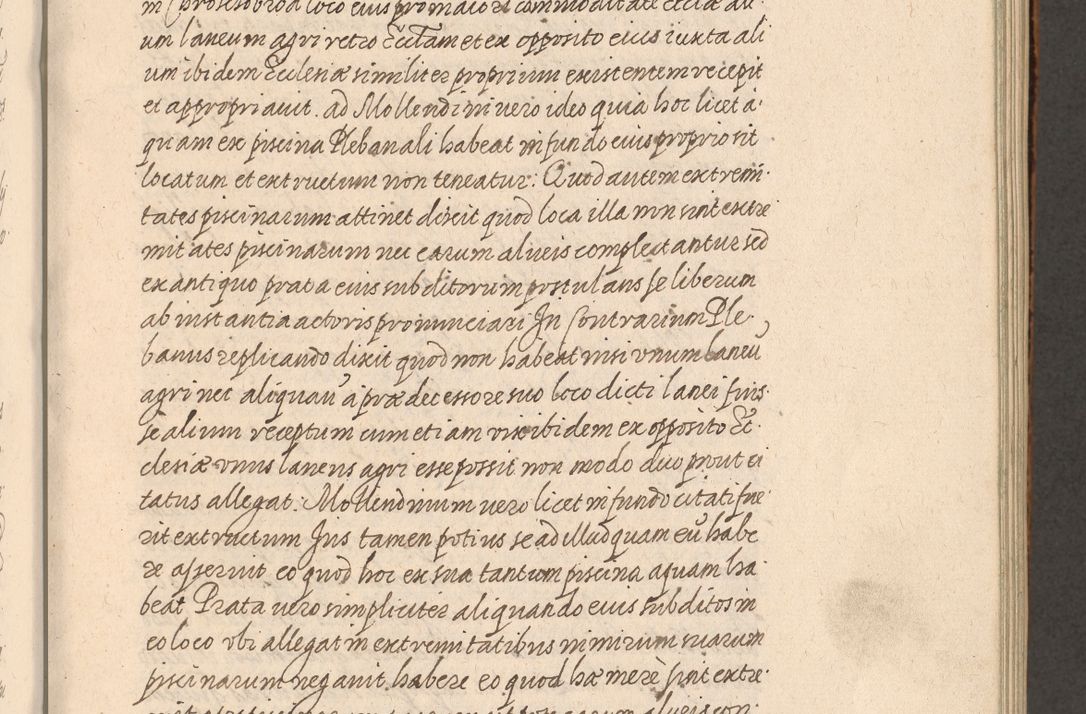 in Conseso brod loco eius pro maiori commoditate ecclæ ali
um laneum agri retro Ecclam et ex opposito eius iuxta ali
um ibidem Ecclesiæ similiter proprium existentem recepit
et appropriauit. ad Mollendinum vero ideo quia hoc licet a
quam ex piscina Plebanali habeat in fundo eius proprio sit
locatum et extructum non teneatur: Quod autem extremi
tates piscinarum attinet dixit quod loca illa non sint extre
mitates piscinarum nec earum alueis complectantur sed
ex antiquo prata eius subditorum postulans se liberum
ab instantia actoris pronunciari In Contrarium Ple
banus replicando dixit quod non habeat nisi vnum laneū
agri nec aliquam a prædecessore suo loco dicti lanei fuis
se alium receptum cum etiam vix ibidem ex opposito Ec
clesiæ vnus laneus agri esse possit non modo duo prout ci
tatus allegat. Mollendinum vero licet in fundo citati fue
rit extructum Jus tamen potius se ad illud quam eū habe
re asseruit eo quod hoc ex sua tantum piscina aquam ha
beat Prata vero simpliciter aliquando eius subditos in
eo loco vbi allegat in extremitatibus nimirum suarum
piscinarum negauit habere eo quod hæ merè sint extre